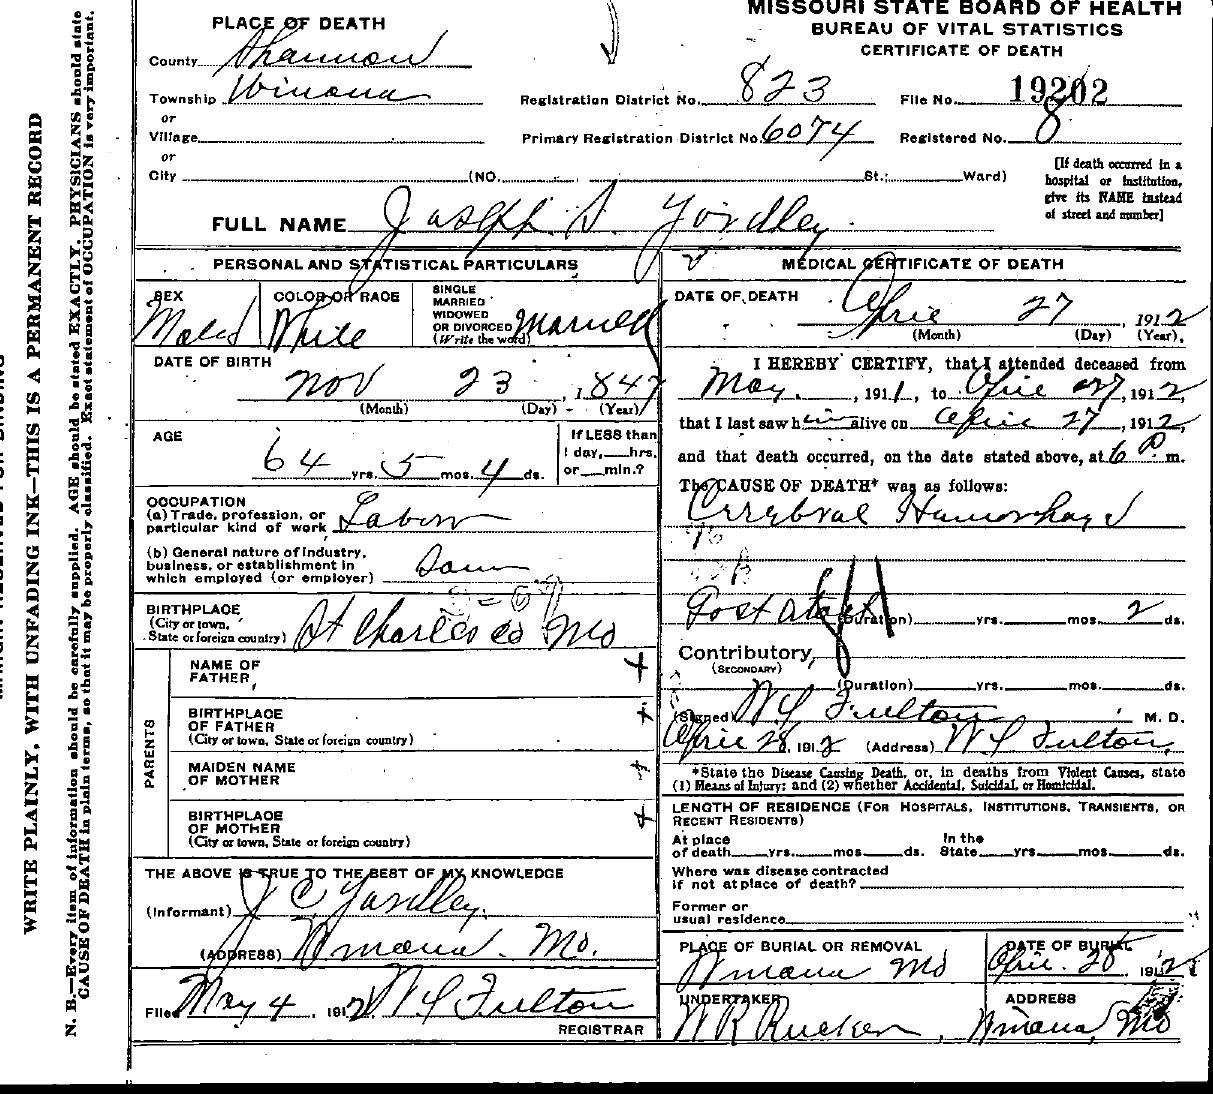 MISSOURI STATE BOARD OF HEALTH
BUREAU OF VITAL STATISTICS
CERTIFICATE OF DEATH
PLACE OF DEATH
County Shannon
Township Winona
or
Village
or
City (NO. St.; Ward)
Registration District No. 823 File No. 19202
Primary Registration District No. 6074 Registered No. 8
[If death occurred in a
hospital or institution,
give its NAME instead
of street and number]
FULL NAME Joseph S. Yardley
PERSONAL AND STATISTICAL PARTICULARS
SEX
Male
COLOR OR RACE
White
SINGLE
MARRIED
WIDOWED
OR DIVORCED
(Write the word)
Married
DATE OF BIRTH
Nov 23, 1847
(Month) (Day) (Year)
AGE
64 yrs. 5 mos. 4 ds.
If LESS than
1 day, hrs.
or min.?
OCCUPATION
(a) Trade, profession, or
particular kind of work Labor
(b) General nature of industry,
business, or establishment in
which employed (or employer)
BIRTHPLACE
(City or town,
State or foreign country) St Charles co Mo
PARENTS
NAME OF
FATHER
BIRTHPLACE
OF FATHER
(City or town, State or foreign country)
MAIDEN NAME
OF MOTHER
BIRTHPLACE
OF MOTHER
(City or town, State or foreign country)
THE ABOVE IS TRUE TO THE BEST OF MY KNOWLEDGE
(Informant) J C Yardley.
(ADDRESS) Winona. Mo.
Filed May 4, 1912 W Fulton
REGISTRAR
MEDICAL CERTIFICATE OF DEATH
DATE OF DEATH
April 27, 1912
(Month) (Day) (Year).
I HEREBY CERTIFY, that I attended deceased from
May, 1911, to April 27, 1912,
that I last saw him alive on April 27, 1912,
and that death occurred, on the date stated above, at 6 P.m.
The CAUSE OF DEATH* was as follows:
Cerrybral Hamorhage
(Duration) yrs. mos. 2 ds.
Contributory
(SECONDARY)
(Duration) yrs. mos. ds.
(Signed) W Fulton M. D.
April 28, 1912 (Address) W Fulton
*State the Disease Causing Death, or, in deaths from Violent Causes, state
(1) Means of Injury; and (2) whether Accidental, Suicidal, or Homicidal.
LENGTH OF RESIDENCE (FOR HOSPITALS, INSTITUTIONS, TRANSIENTS, OR
RECENT RESIDENTS)
At place In the
of death yrs. mos. ds. State yrs. mos. ds.
Where was disease contracted
if not at place of death?
Former or
usual residence
PLACE OF BURIAL OR REMOVAL
Winona Mo
DATE OF BURIAL
April. 28, 1912
UNDERTAKER
W R Rucker
ADDRESS
Winona, Mo
WRITE PLAINLY, WITH UNFADING INK—THIS IS A PERMANENT RECORD
N. B.—Every item of information should be carefully supplied. AGE should be stated EXACTLY. PHYSICIANS should state
CAUSE OF DEATH in plain terms, so that it may be properly classified. Exact statement of OCCUPATION is very important.